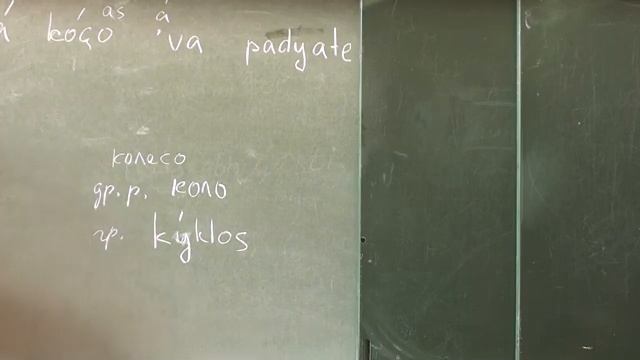 á kóço 'va padyate
as á
колесо
др.р. коло
гр. kýklos